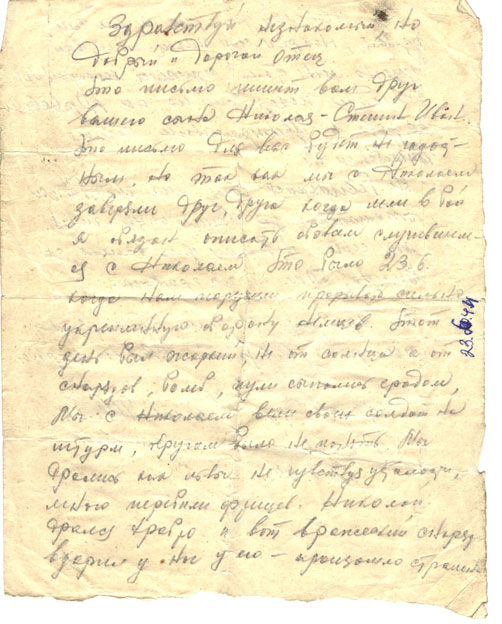 Здравствуй незнакомый, но
Добрый и Дорогой Отец
Это письмо пишет вам Друг
вашего сына Николая - Степин Иван.
Это письмо Для Вас будет не
но так как мы с Николаем
заверяли Друг, Друга когда шли в бой
я обязан описать обовсем случивнем
ся с Николаем. Это было 23.6.
когда нам поручили прорвать сильно
укрепленную оборону немцев. Этот
день был жаркий, не от солнца а от
снарядов, бомб, пули сыпались градом,
Мы с Николаем вели своих солдат на
штурм, кругом было не Мы
Дрались как львы не чувствуя усталости,
много перебили фрицев. Николай
дрался храбро и вот вражеский снаряд
ударил у
23.6.44